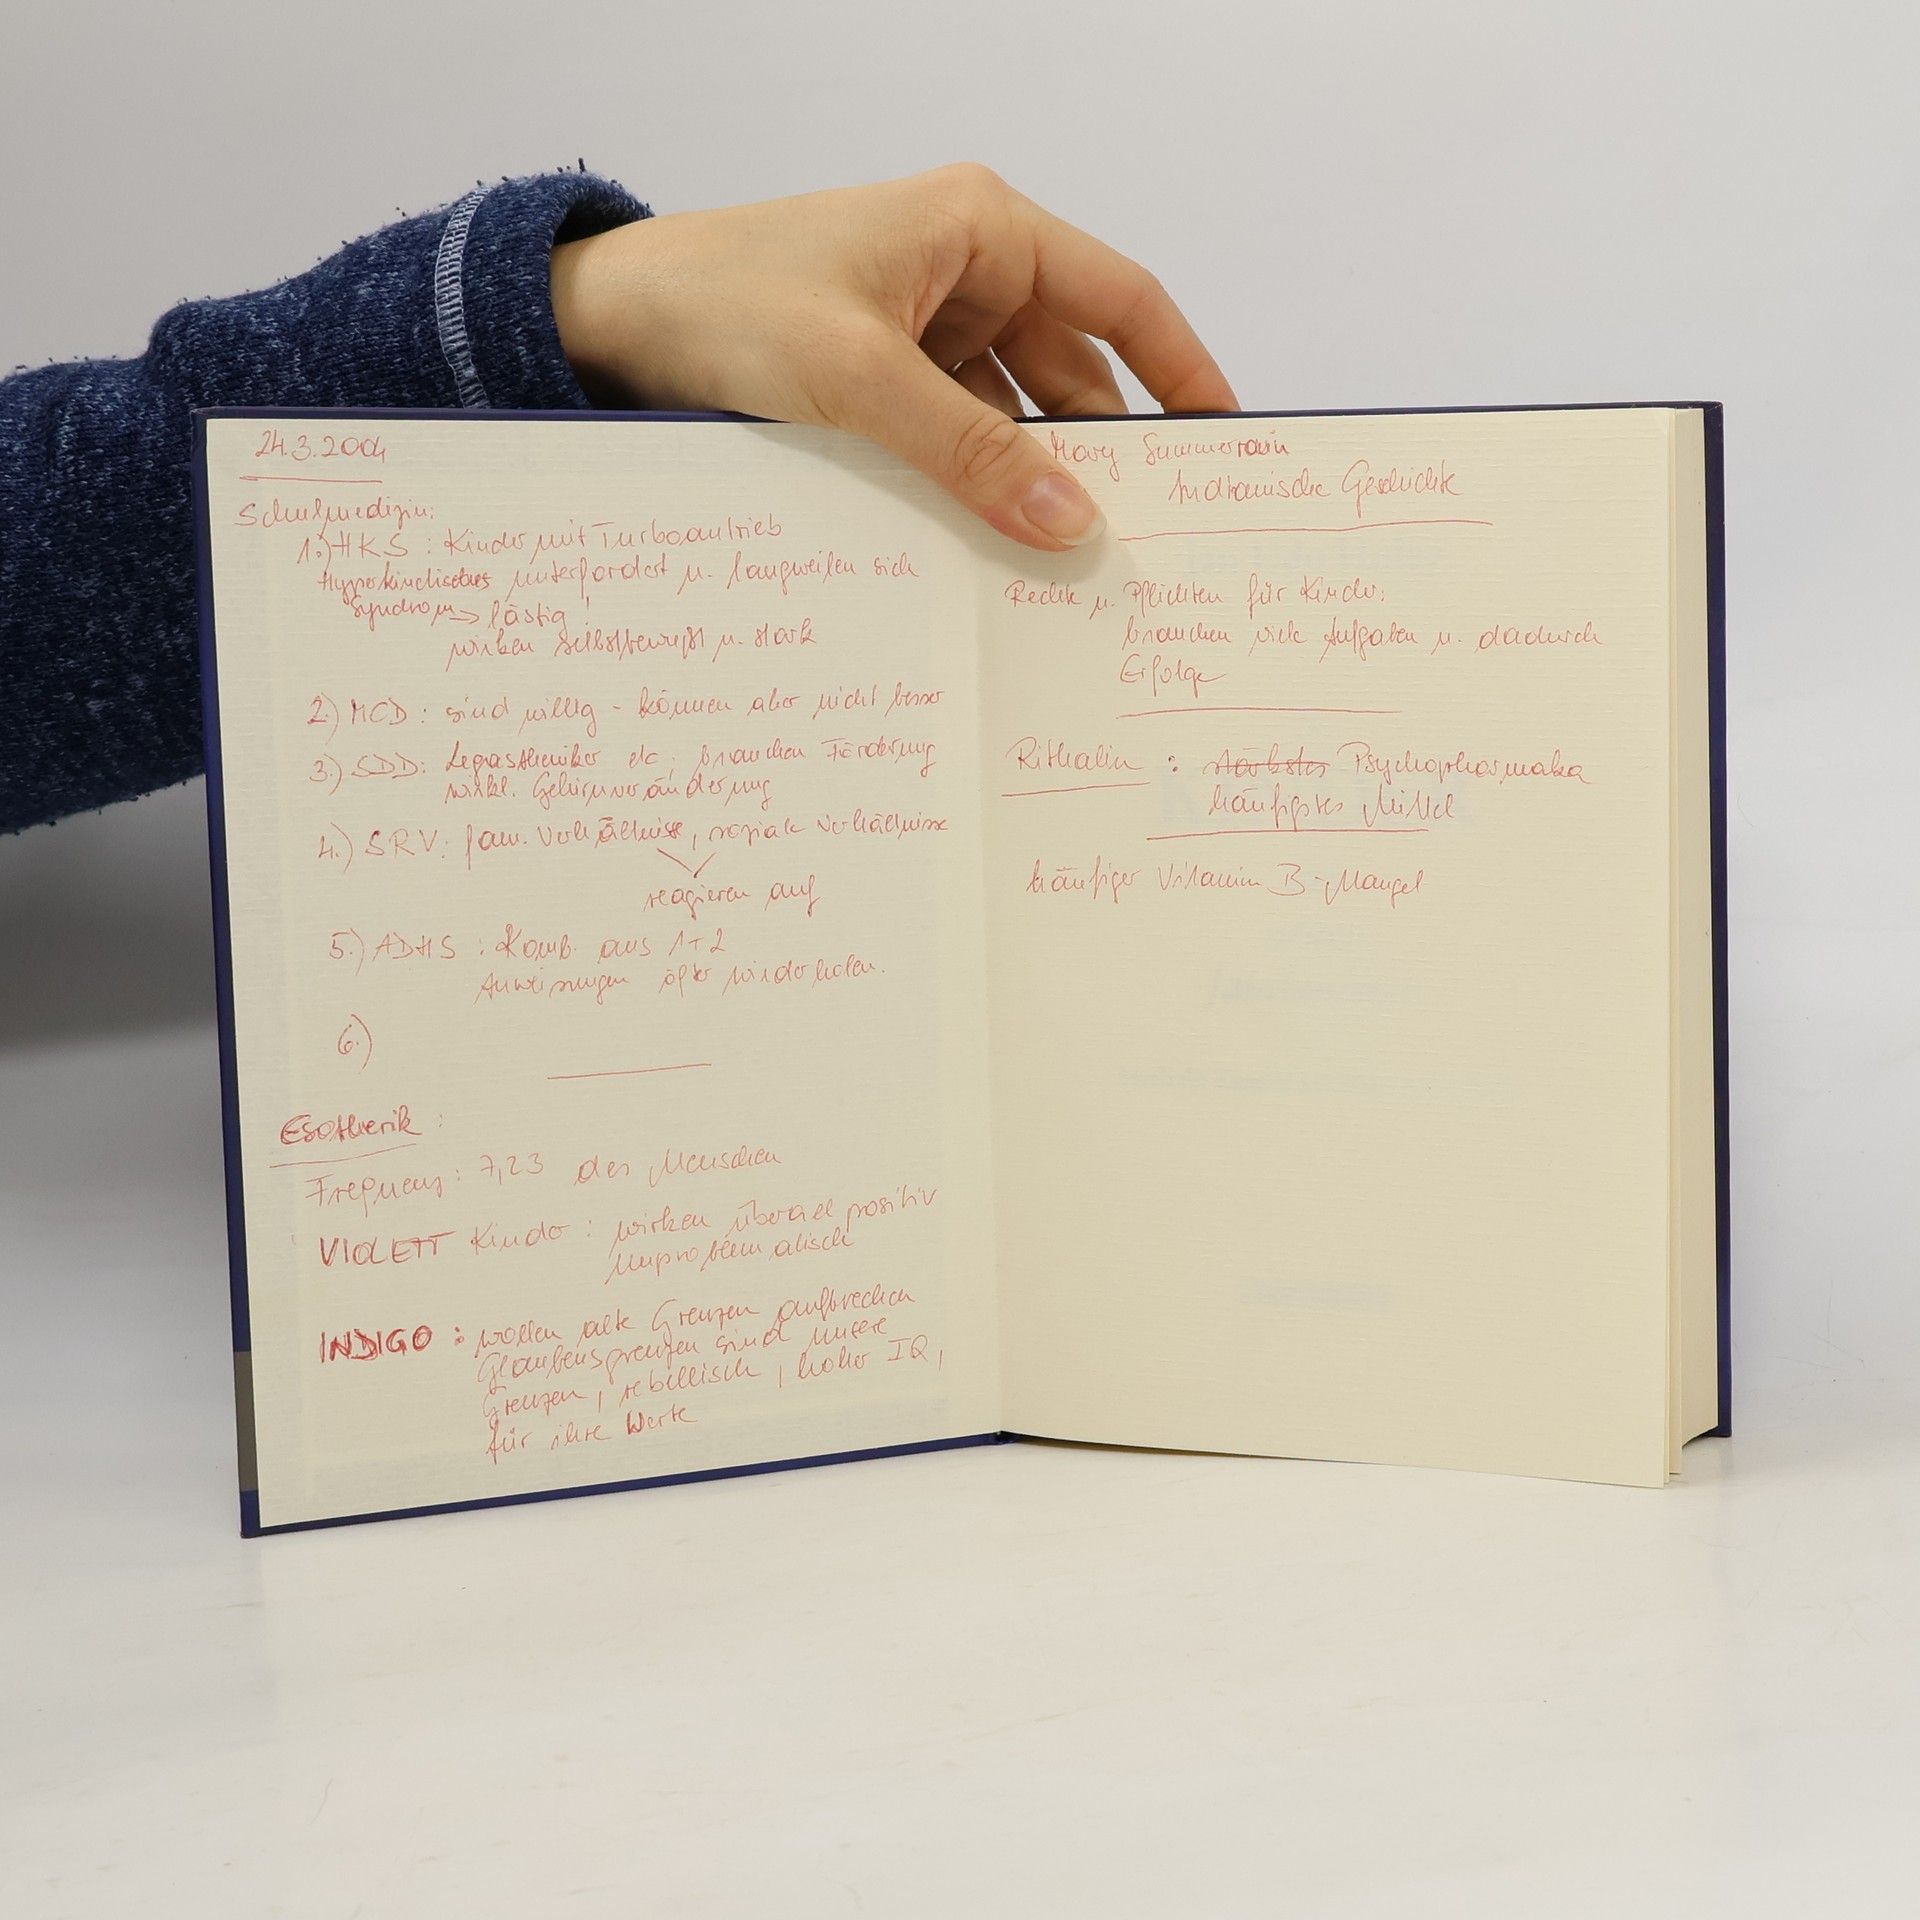 24.3.2004
Schulmedizin:
1.) HKS : Kinder mit Turboantrieb
Hyperkinetisches unterfordert u. langweilen sich
Syndrom → lästig !
wirken selbstbewußt u. stark
2.) MCD : sind willig - können aber nicht besser
3.) SDD : Legastheniker etc, brauchen Förderung
wirkl. Gehirnveränderung
4.) SRV : fam. Verhältnisse, soziale Verhältnisse
reagieren auf
5.) ADHS : Komb. aus 1+2
Anweisungen öfter wiederholen.
6.)
Esotherik :
Frequenz : 7,23 des Menschen
VIOLETT Kinder : wirken überall positiv
unproblematisch
INDIGO : wollen alte Grenzen aufbrechen
Glaubensgrenzen sind unsere
Grenzen, rebellisch, hoher IQ,
für ihre Werte
Mary Summerrain
Indianische Geschichte
Rechte u. Pflichten für Kinder:
brauchen viele Aufgaben u. dadurch
Erfolge
Rithalin : stärkstes Psychopharmaka
häufigstes Mittel
häufiger Vitamin B-Mangel